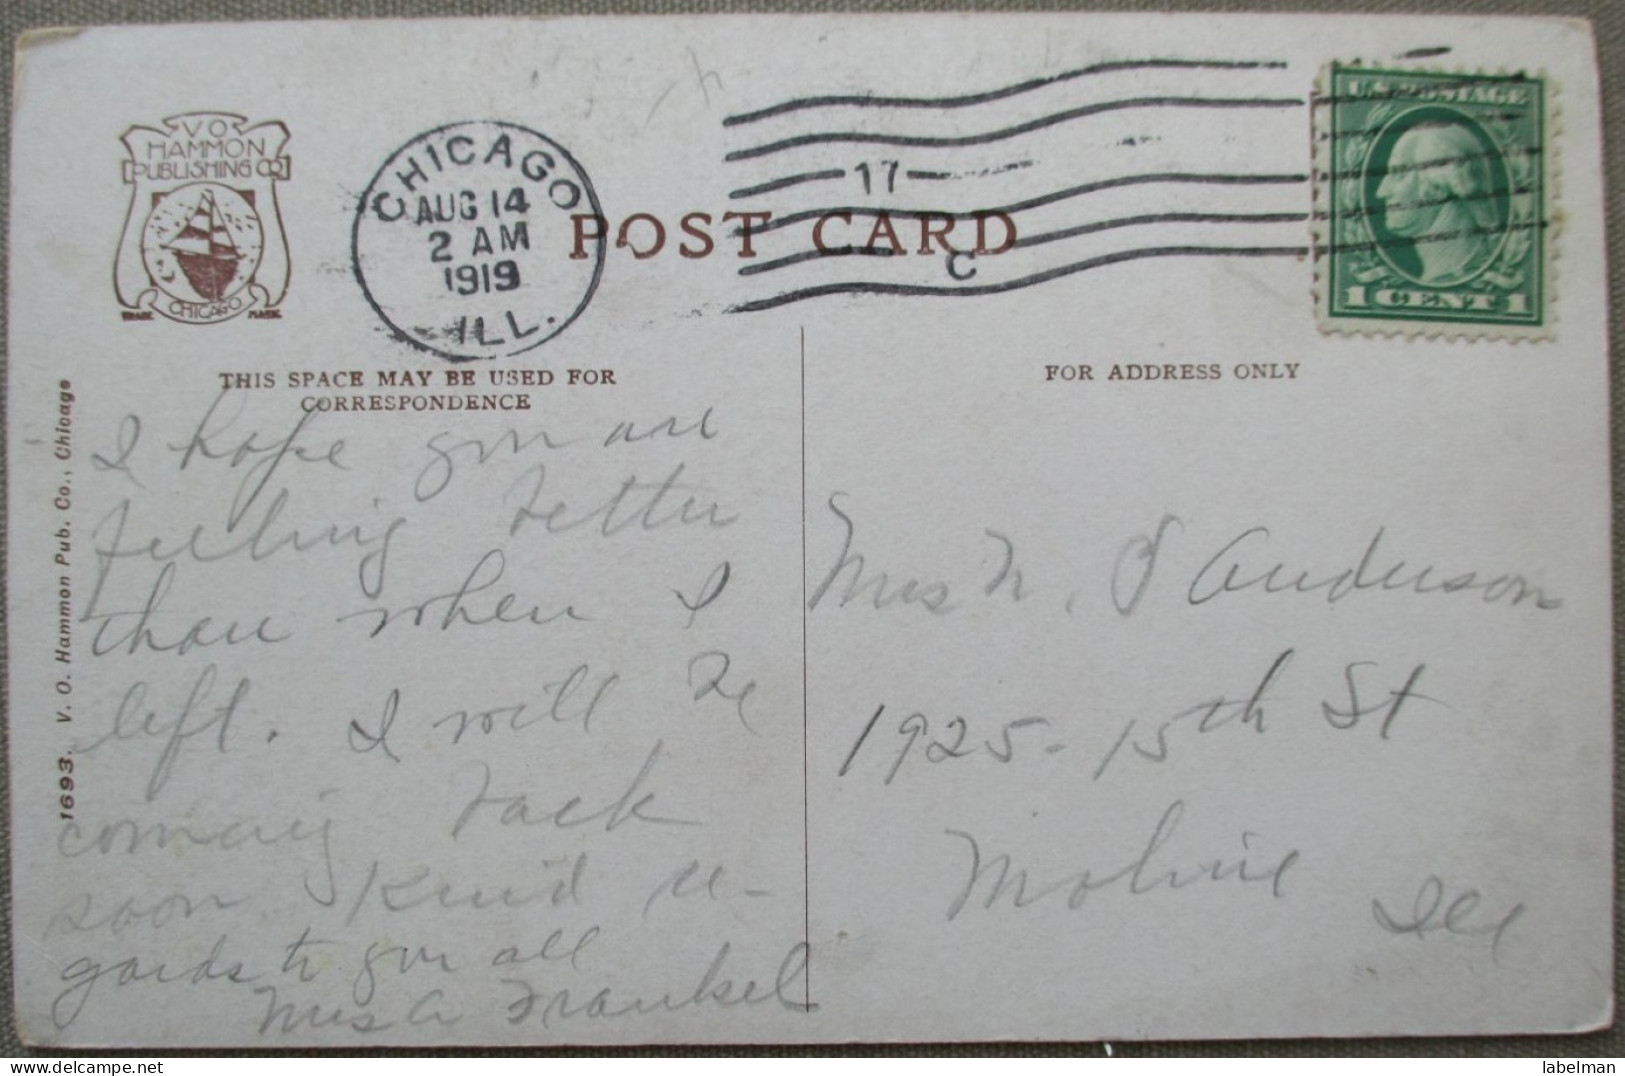 V O
HAMMON
PUBLISHING CO
CHICAGO
TRADE MARK
CHICAGO
AUG 14
2 AM
1919
ILL.
17
C
U.S. POSTAGE
1 CENT 1
POST CARD
THIS SPACE MAY BE USED FOR
CORRESPONDENCE
FOR ADDRESS ONLY
1693. V. O. Hammon Pub. Co., Chicago
I hope you are
feeling better
than when I
left. I will be
coming back
soon Kind re-
gards to you all
Mrs A Frankel
Mrs N. J Anderson
1925-15th St
Moline
Ill
labelman
delcampe.net